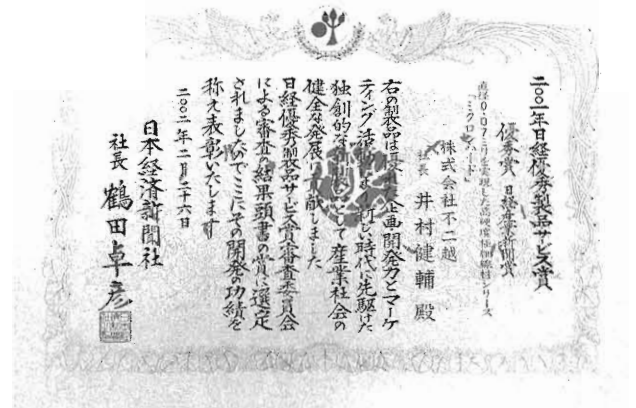 二〇〇一年日経優秀製品サービス賞
優秀賞 日経産業新聞賞
直径0.07ミリを実現した高硬度極細線材シリーズ
「ミクロハード」
株式会社不二越
社長 井村健輔 殿
右の製品は 企画開発力とマーケ
ティング活動 新しい時代に先駆けた
独創的な として産業社会の
健全な発展に貢献しました
日経優秀製品サービス賞審査委員会
による審査の結果頭書の賞に選定
されましたのでここにその開発の功績を
称え表彰いたします
二〇〇二年二月二十六日
日本経済新聞社
社長 鶴田卓彦